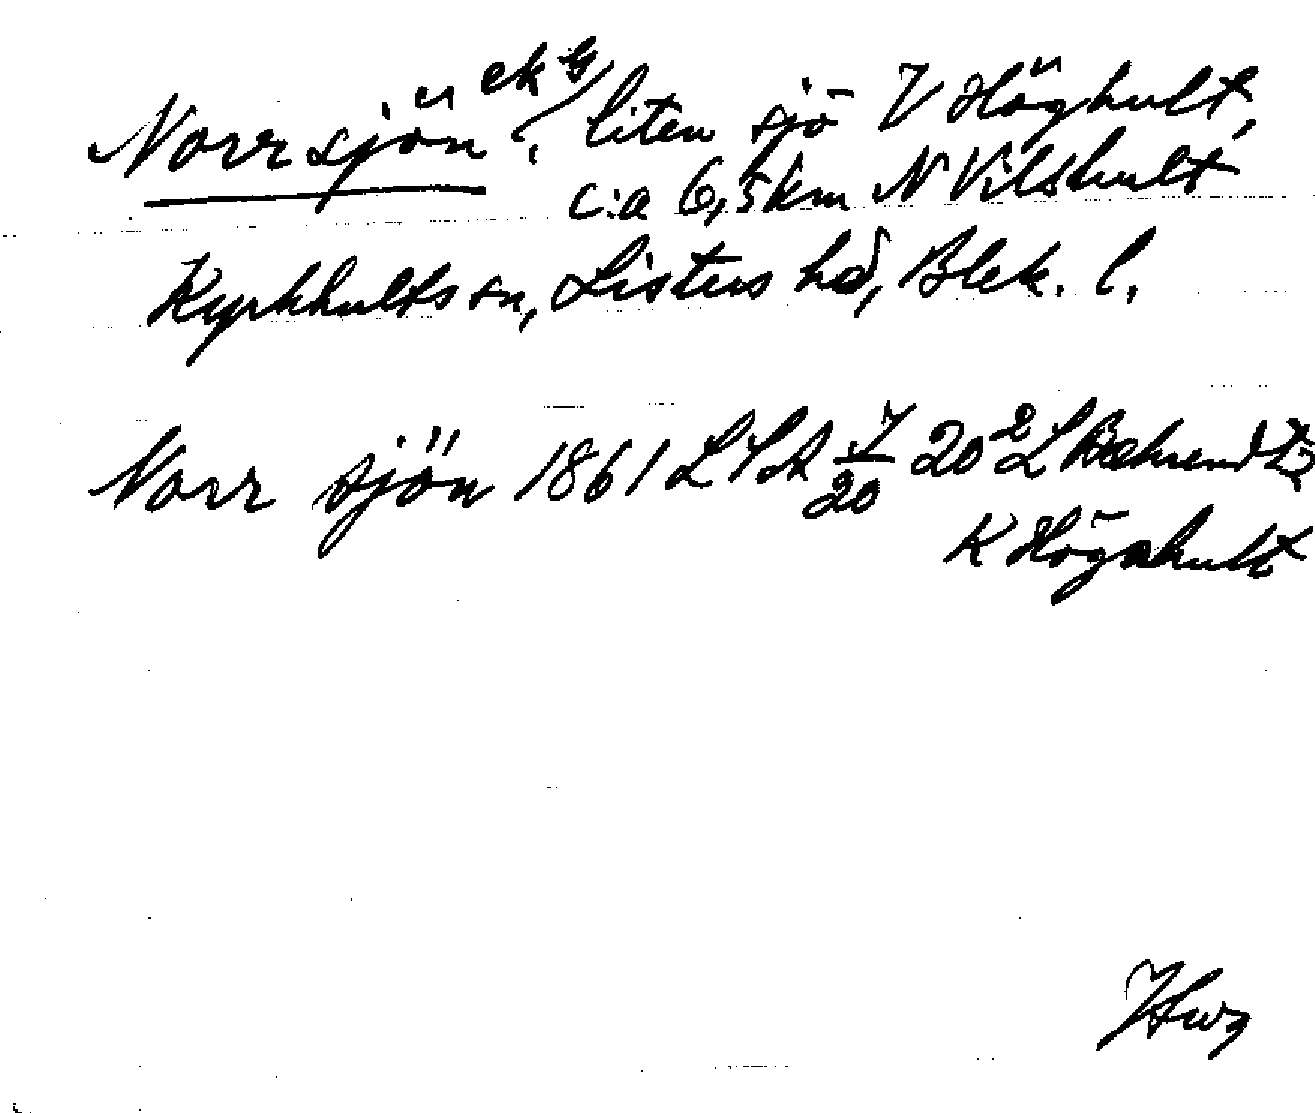 Norrsjön ekbl, liten sjö V Höghult,
c:a 6,5 km N Vilshult
Kyrkhults sn, Listers hd, Blek. l.
Norr sjön 1861 LSA 7/20 20² L
K Höghult